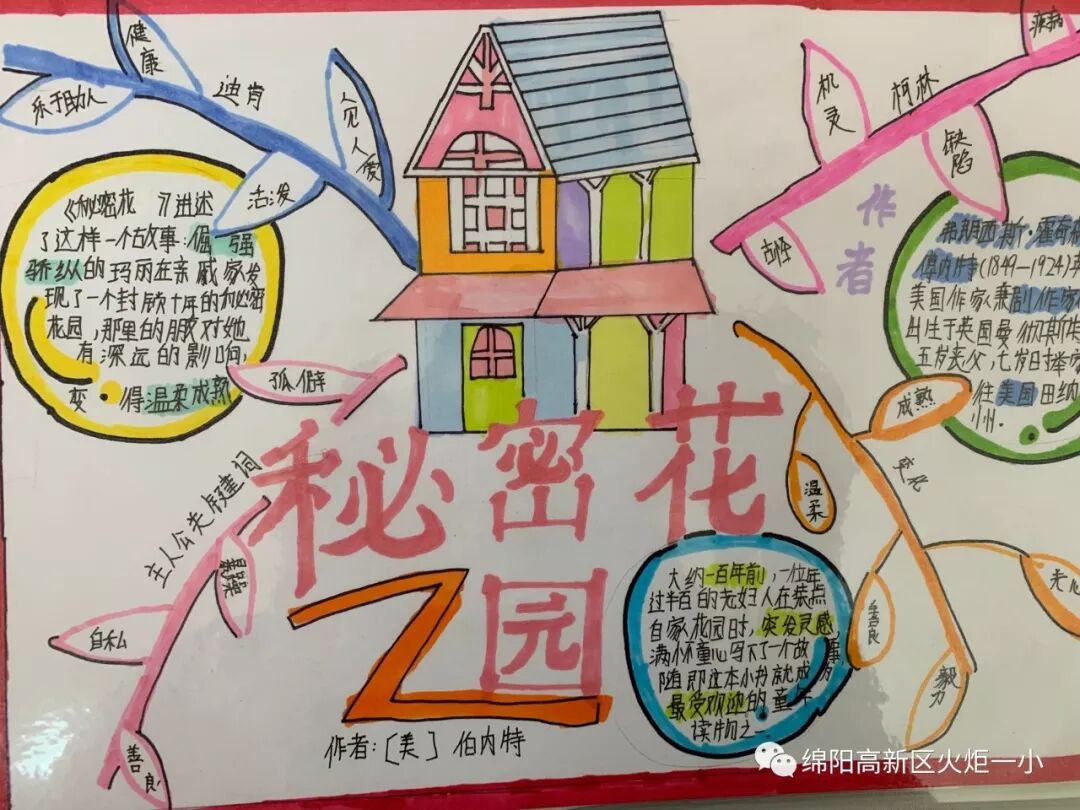 健康
乐于助人
迪肯
人见人爱
活泼
机灵
柯林
疾病
缺陷
古怪
作者
《秘密花 》讲述
了这样一个故事：倔 强
骄纵的玛丽在亲戚家发
现了一个封锁十年的秘密
花园，那里的朋对她
有深远的影响，
变 得温柔成熟
弗朗西斯·霍奇
傅内特(1849—1924)
美国作家兼剧作家
出生于英国曼彻斯特
五岁丧父，七岁时举家
往美国田纳
州。
孤僻
主人公关键词
暴躁
自私
善良
秘密花
园
之
作者：[美] 伯内特
成熟
变化
温柔
善良
毅力
大约一百年前，一位年
过半百的老妇人在装点
自家花园时，突发灵感，
满怀童心写下了一个故事
随即这本小册就成为
最受欢迎的童年
读物之一
绵阳高新区火炬一小